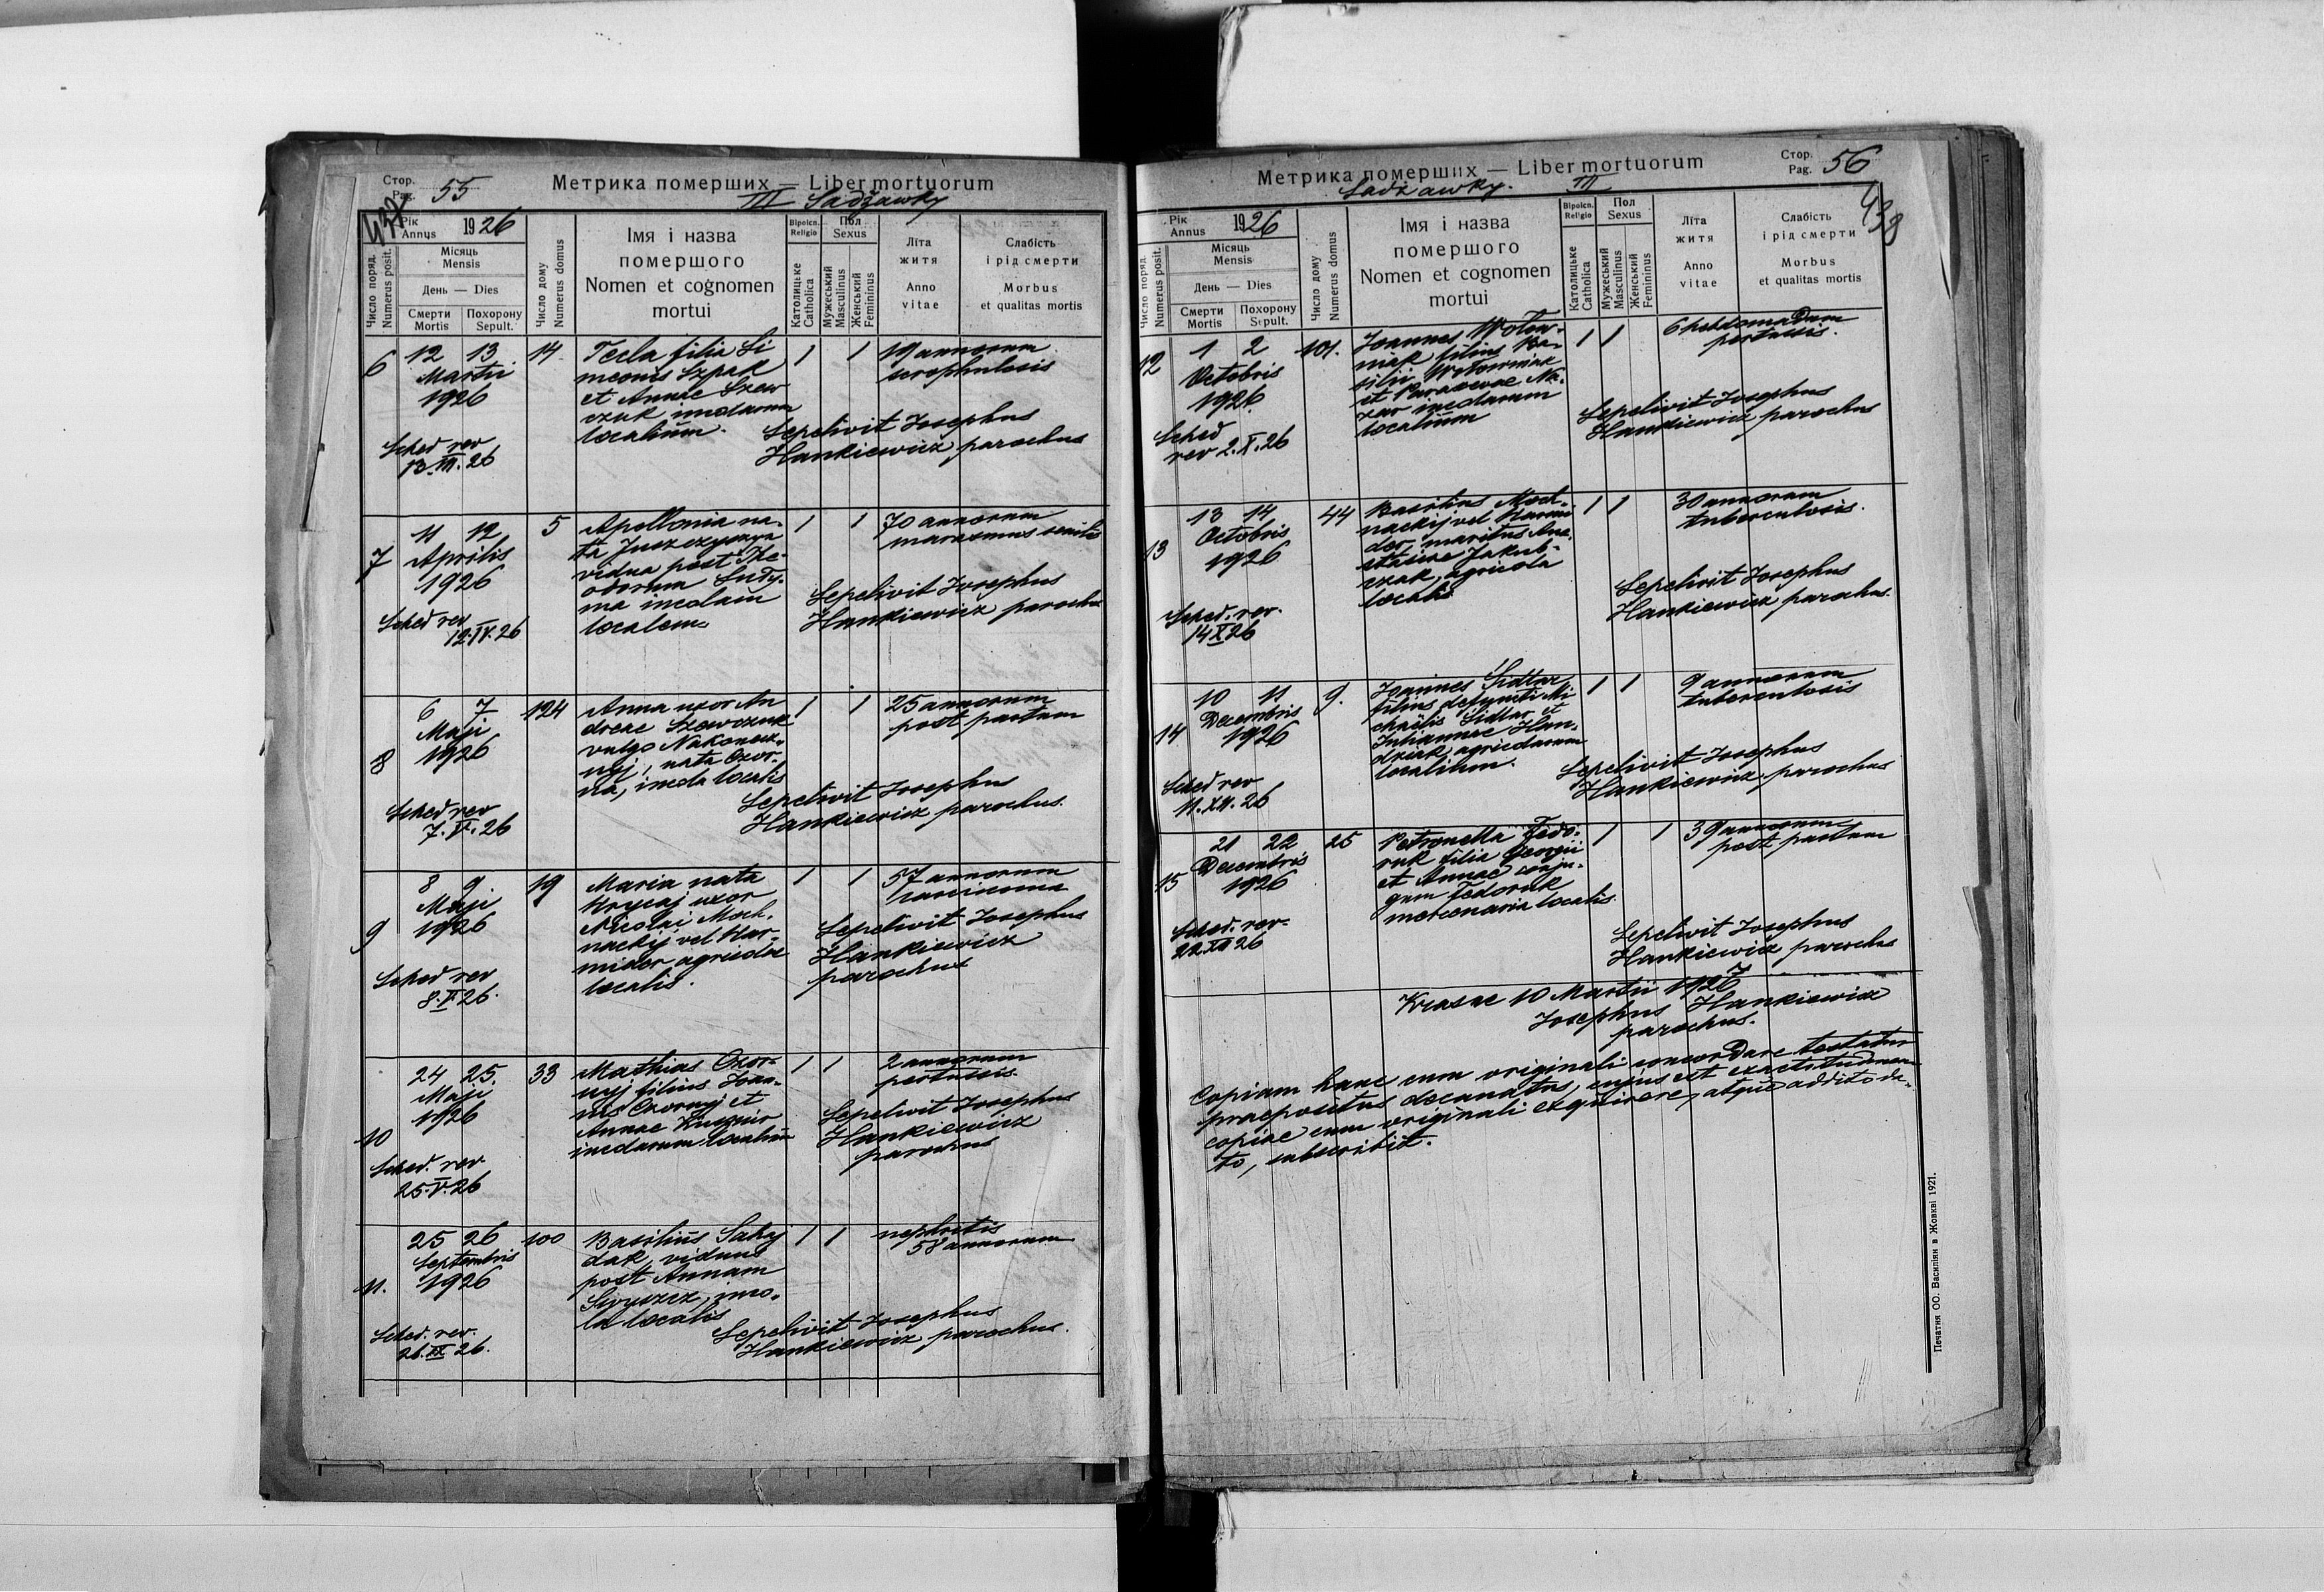 Стор. Pag. 55
Метрика померших — Liber mortuorum
III Sadżawky
437
Рік Annus 1926
Місяць Mensis
День — Dies
Смерти Mortis
Похорону Sepult.
Число поряд. Numerus posit.
Число дому Numerus domus
Імя і назва
помершого
Nomen et cognomen
mortui
Віроісп. Religio
Католицьке Catholica
Пол Sexus
Мужеський Masculinus
Женський Femininus
Літа
житя
Anno
vitae
Слабість
і рід смерти
Morbus
et qualitas mortis
6
12 13
Martii
1926
Sched rev
13.III.26
14
Tecla filia Si
meonis Szpak
et Annae Szew
czuk incolarum
localium.
1 1
19 annorum
scrophulosis
Sepelivit Josephus
Hankiewicz parochus
7
11 12
Aprilis
1926
Sched rev
12.IV.26
5
Apollonia na-
ta
vidua post The-
odorum Sudy-
ma incolam
localem
1 1
70 annorum
marasmus senilis
Sepelivit Josephus
Hankiewicz parochus
8
6 7
Maji
1926
Sched rev
7.V.26
124
Anna uxor An
dreae Szewczuk
vulgo Nakonecz-
nyj, nata Czor-
na, incola localis
1 1
25 annorum
post partum
Sepelivit Josephus
Hankiewicz parochus.
9
8 9
Maji
1926
Sched rev
8.V.26.
19
Maria nata
Hrycaj uxor
Nicolai Moch-
nackij vel Har-
mider agricolae
localis.
1 1
57 annorum
carcinoma
Sepelivit Josephus
Hankiewicz
parochus
10
24 25.
Maji
1926
Sched. rev.
25.V.26
33
Mathias Czor-
nyj filius Joan-
nis Czornyj et
Annae Kusznir
incolarum localium
1 1
2 annorum
pertussis
Sepelivit Josephus
Hankiewicz
parochus
11.
25 26
Septembris
1926
Sched. rev.
26.IX.26.
100
Basilius Sahaj
dak viduus
post Annam
inco-
la localis
1 1
nephritis
58 annorum
Sepelivit Josephus
Hankiewicz parochus.
Метрика померших — Liber mortuorum
Стор. Pag. 56
Sadżawky. III
438
Рік Annus 1926
Місяць Mensis
День — Dies
Смерти Mortis
Похорону Sepult.
Число поряд. Numerus posit.
Число дому Numerus domus
Імя і назва
помершого
Nomen et cognomen
mortui
Віроісп. Religio
Католицьке Catholica
Пол Sexus
Мужеський Masculinus
Женський Femininus
Літа
житя
Anno
vitae
Слабість
і рід смерти
Morbus
et qualitas mortis
12
1 2
Octobris
1926.
Sched
rev 2.X.26
101.
Joannes Wotow-
niak filius Ba-
silii Wotowniak
et Parascevae Na-
zar incolarum
localium
1 1
6 hebdomadum
pertussis.
Sepelivit Josephus
Hankiewicz parochus
13
13 14
Octobris
1926
Sched. rev.
14 X 26
44
Basilius Moch-
nackij vel Harmi
der maritus Ana-
stasiae Jakub-
czak, agricola
localis
1 1
30 annorum
tuberculosis.
Sepelivit Josephus
Hankiewicz parochus.
14
10 11
Decembris
1926
Sched rev
11.XII.26
9.
Joannes Sidlar
filius defuncti Mi
chaelis Sidlar et
Juliannae Han-
dziak agricolarum
localium.
1 1
9 annorum
tuberculosis
Sepelivit Josephus
Hankiewicz parochus
15
21 22
Decembris
1926
Sched. rev.
22.XII 26
25
Petronella Fedo-
ruk filia Georgii
et Annae conju-
gum Fedoruk
mercenaria localis.
1 1
39 annorum
post partum
Sepelivit Josephus
Hankiewicz parochus
Krasne 10 Martii 1927
Josephus Hankiewicz
parochus.
Copiam hanc cum originali concordare testatur
praepositus decanatus, cujus est exactitudinem
copiae cum originali exquirere, atque addito da-
to, subscribit.
Печатня ОО. Василіян в Жовкві 1921.